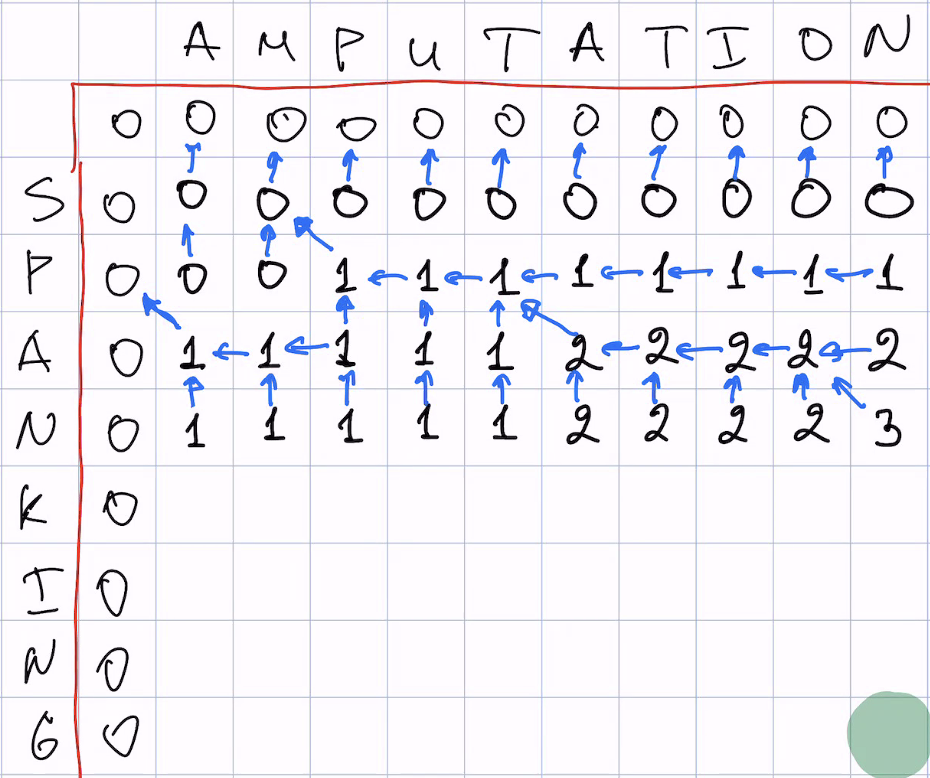 A M P U T A T I O N
0 0 0 0 0 0 0 0 0 0 0
S 0 0 0 0 0 0 0 0 0 0 0
P 0 0 0 1 1 1 1 1 1 1 1
A 0 1 1 1 1 1 2 2 2 2 2
N 0 1 1 1 1 1 2 2 2 2 3
K 0
I 0
N 0
G 0